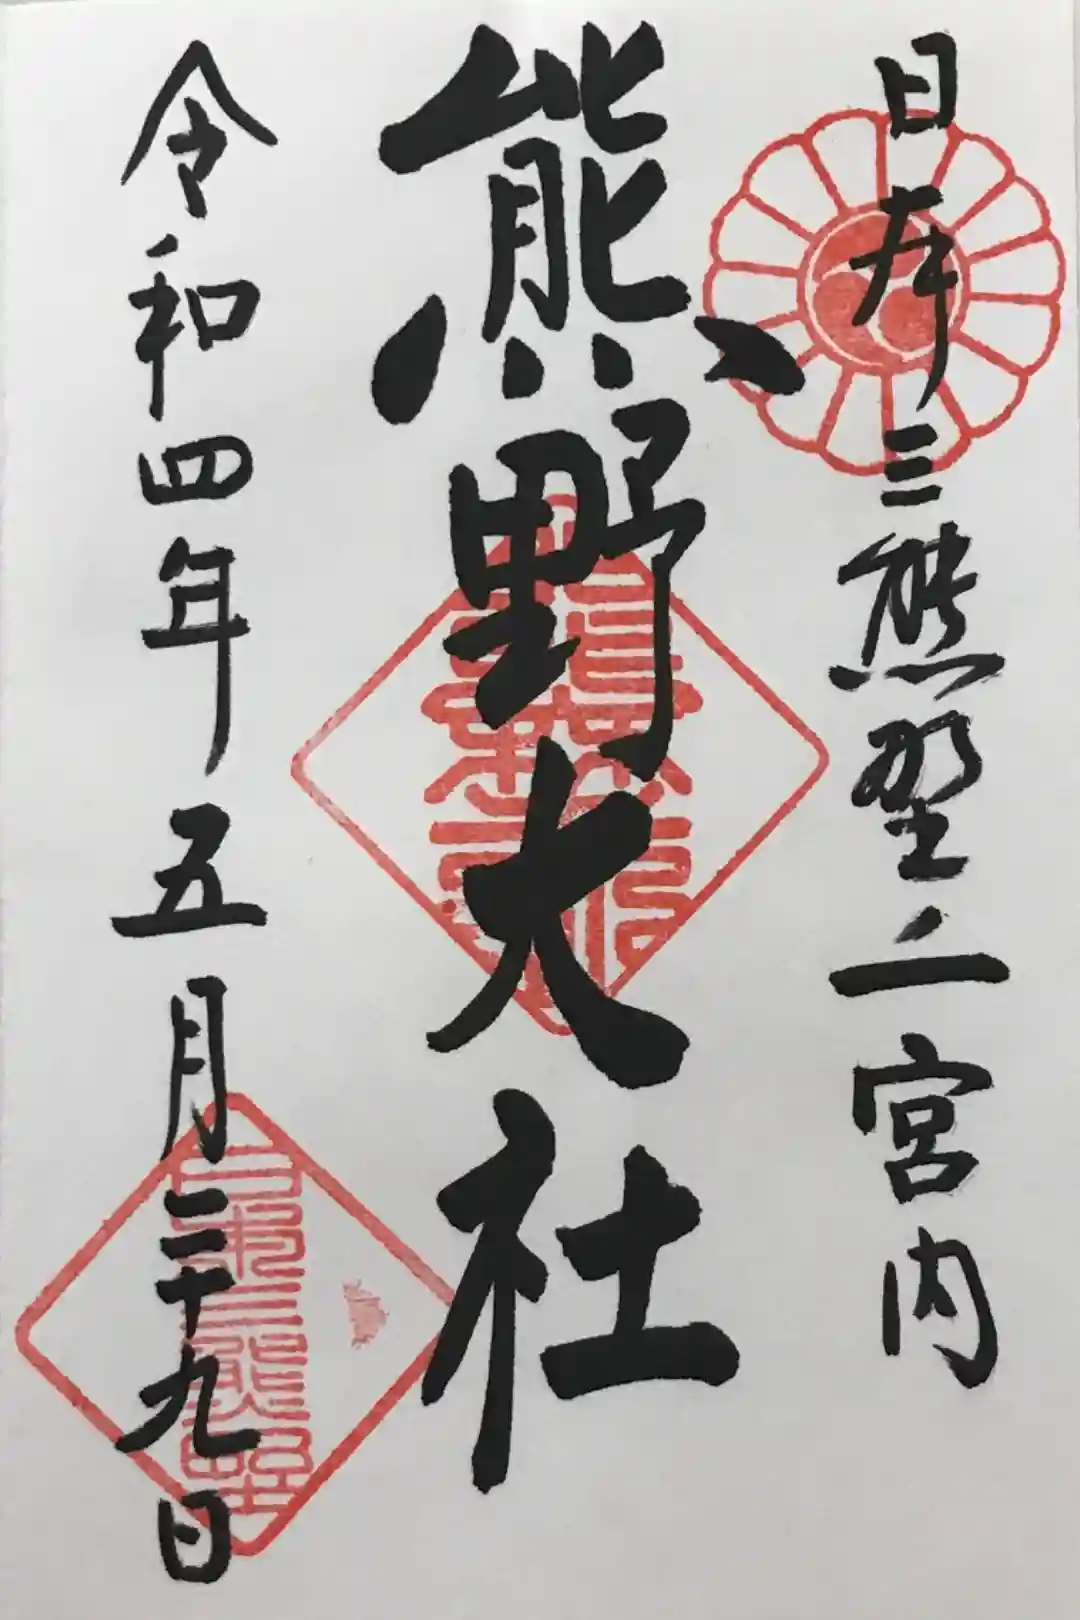 日本三熊野之一宮内
熊野大社
令和四年五月二十九日